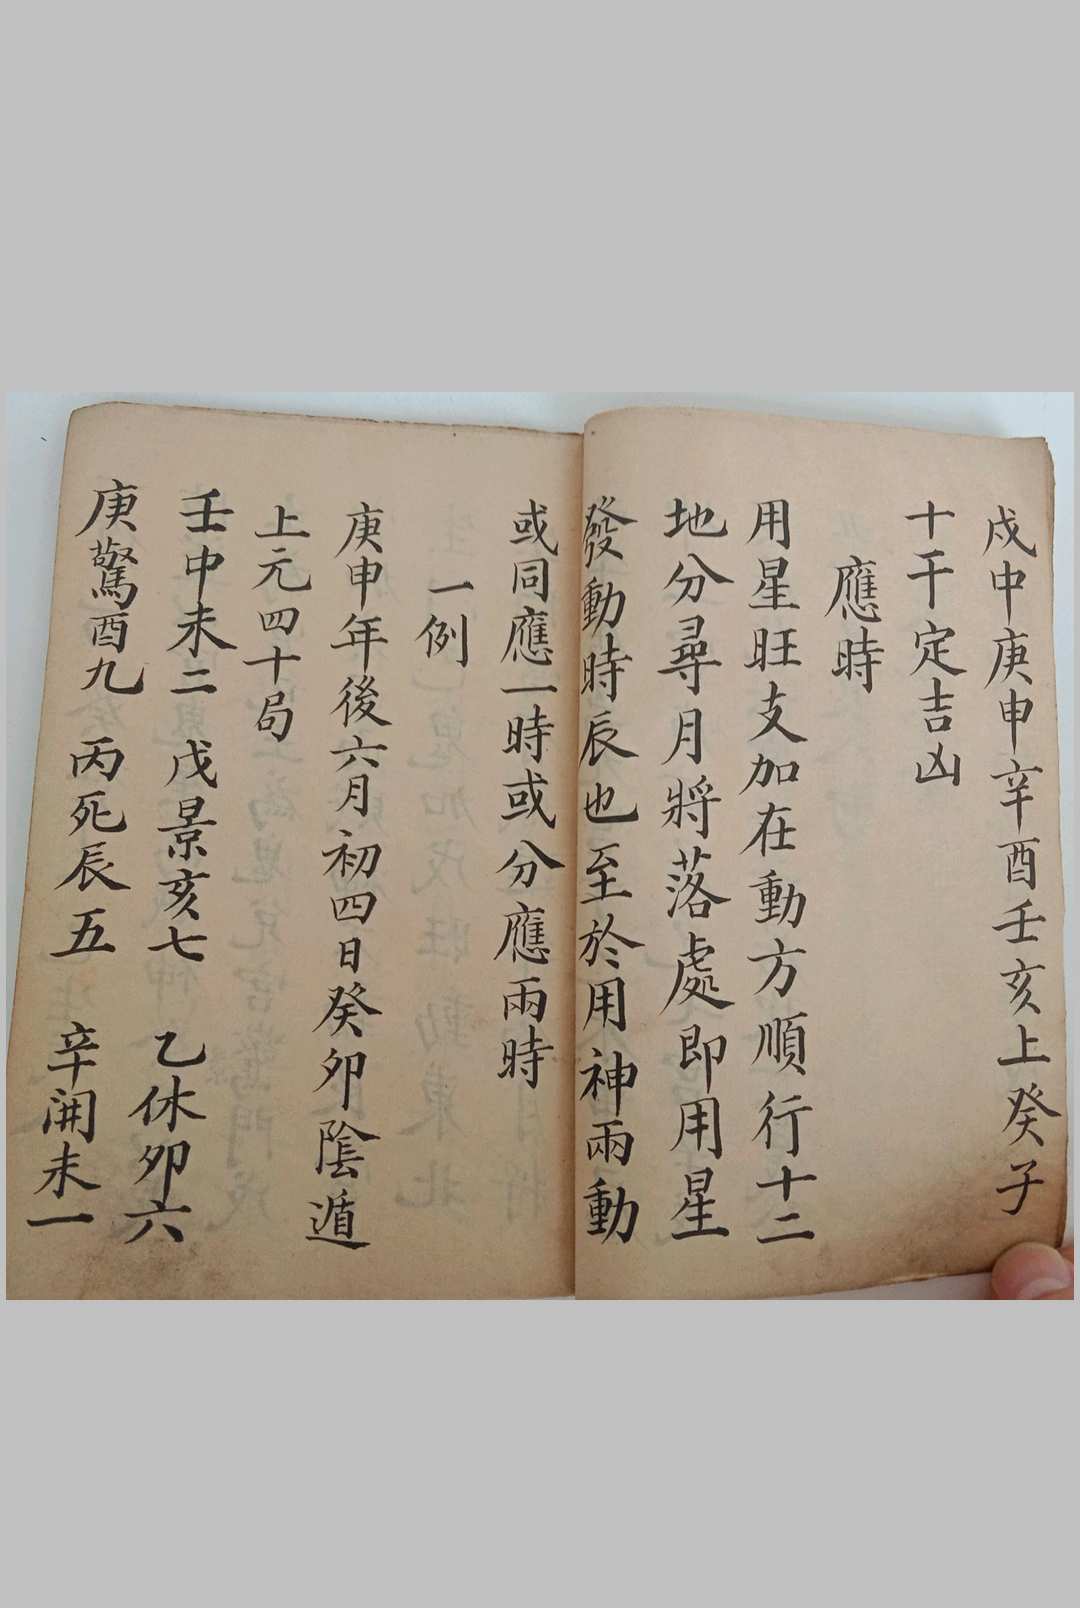 戍中庚申辛酉壬亥上癸子
十干定吉凶
應時
用星旺支加在動方順行十二
地分尋月將落處即用星
發動時辰也至於用神兩動
或同應一時或分應兩時
一例
庚申年後六月初四日癸卯陰遁
上元四十局
壬中未二 戊景亥七 乙休卯六
庚驚酉九 丙死辰五 辛開未一